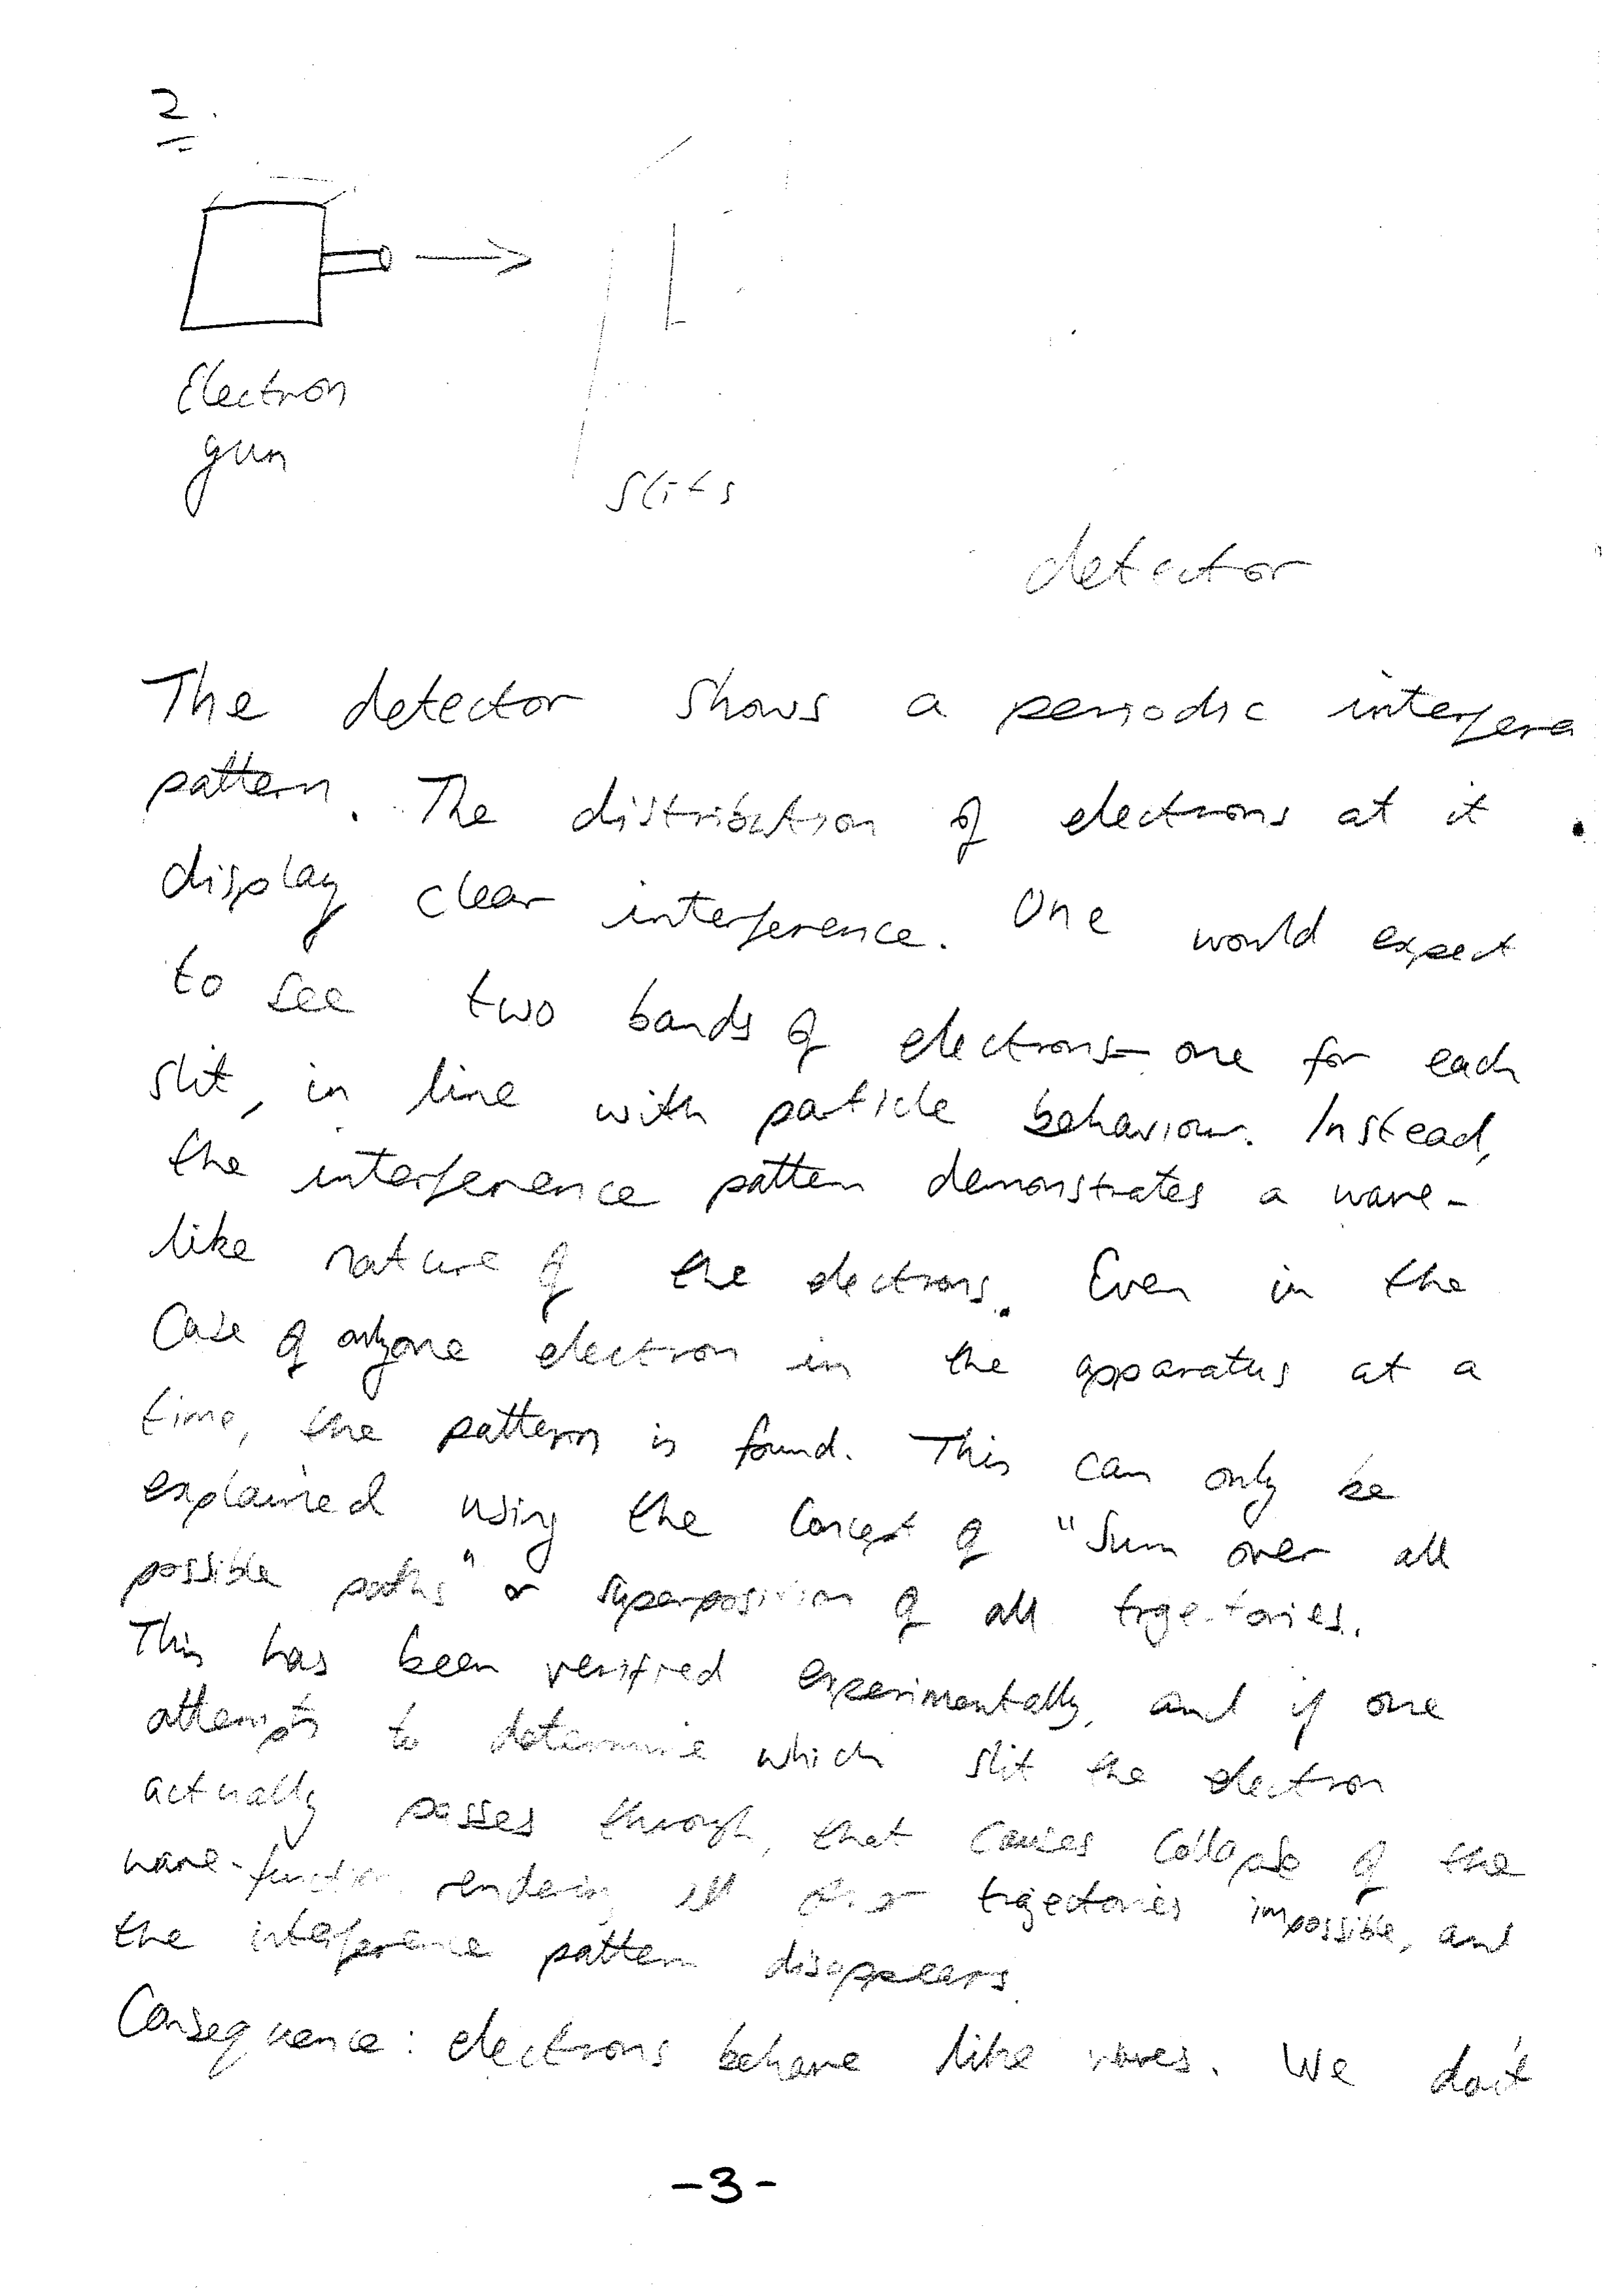 2.
Electron
gun
slits
detector
The detector shows a periodic interfere
pattern. The distribution of electrons at it
display clear interference. One would expect
to see two bands of electrons – one for each
slit, in line with particle behaviour. Instead,
the interference pattern demonstrates a wave-
like nature of the electrons. Even in the
case of only one electron in the apparatus at a
time, the pattern is found. This can only be
explained using the concept of "sum over all
possible paths" or superposition of all trajectories.
This has been verified experimentally, and if one
attempts to determine which slit the electron
actually passes through, that causes collapse of the
wave-function rendering all other trajectories impossible, and
the interference pattern disappears.
Consequence: electrons behave like waves. We don't
-3-